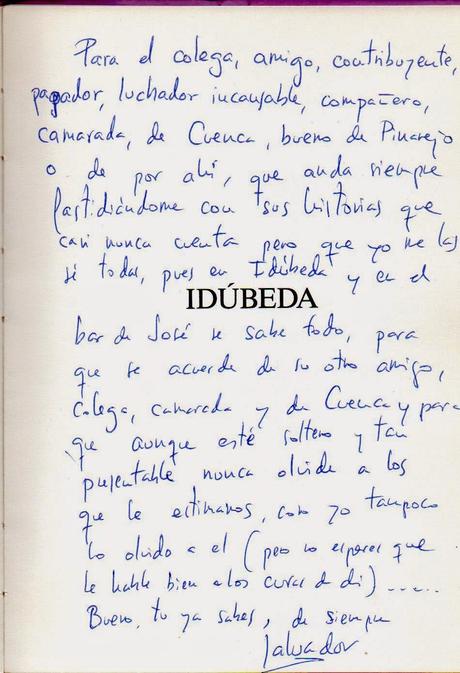 Para el colega, amigo, contribuyente,
pagador, luchador incansable, compañero,
camarada, de Cuenca, bueno de Pinarejo
o de por ahí, que anda siempre
fastidiándome con sus historias que
casi nunca cuenta pero que yo me las
sé todas, pues en Idúbeda y en el
IDÚBEDA
bar de José se sabe todo, para
que se acuerde de su otro amigo,
colega, camarada y de Cuenca y para
que aunque esté soltero y tan
presentable nunca olvide a los
que le estimamos, como yo tampoco
lo olvido a el (pero no esperes que
le hable bien a los curas de di) .....
Bueno, tu ya sabes, de siempre
Salvador